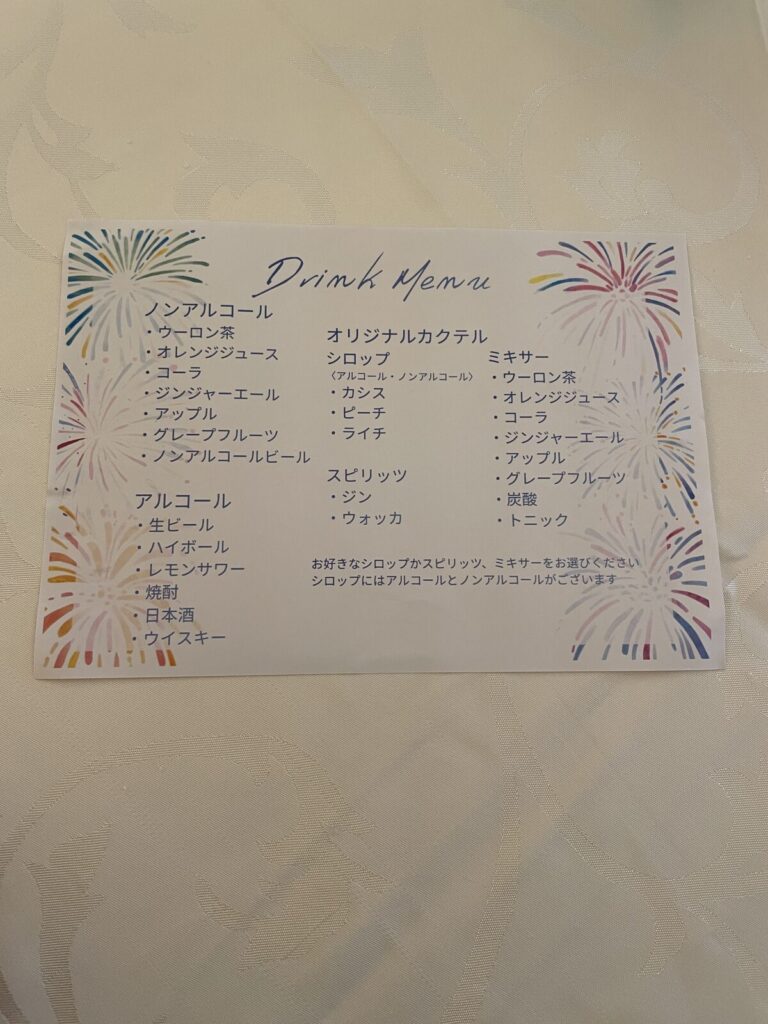 Drink Menu
ノンアルコール
・ウーロン茶
・オレンジジュース
・コーラ
・ジンジャーエール
・アップル
・グレープフルーツ
・ノンアルコールビール
アルコール
・生ビール
・ハイボール
・レモンサワー
・焼酎
・日本酒
・ウイスキー
オリジナルカクテル
シロップ
〈アルコール・ノンアルコール〉
・カシス
・ピーチ
・ライチ
スピリッツ
・ジン
・ウォッカ
ミキサー
・ウーロン茶
・オレンジジュース
・コーラ
・ジンジャーエール
・アップル
・グレープフルーツ
・炭酸
・トニック
お好きなシロップかスピリッツ、ミキサーをお選びください
シロップにはアルコールとノンアルコールがございます